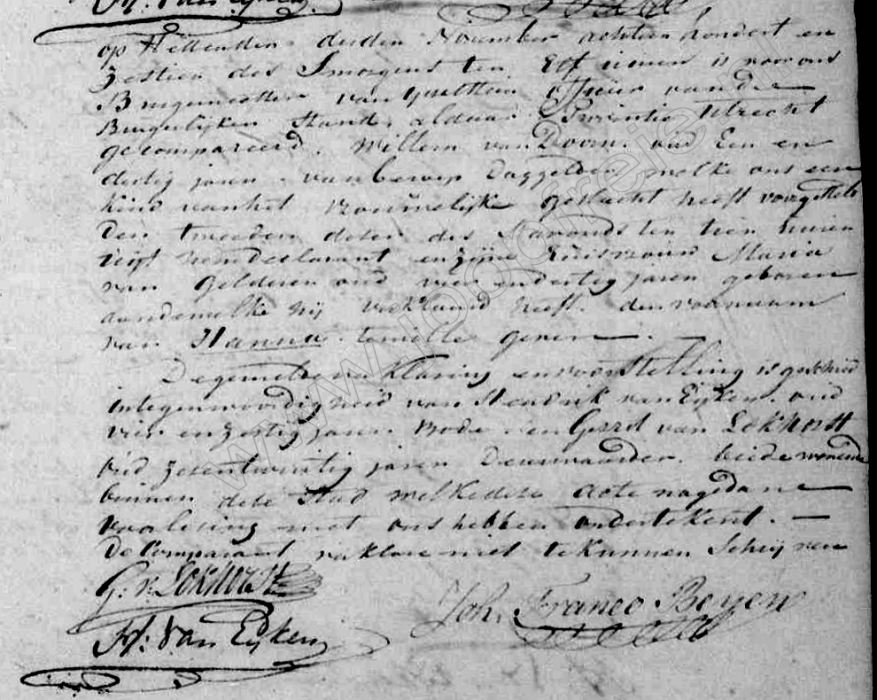 op Heeden den derden November achtien hondert en
zestien des Smorgens ten Elf uuren is voor ons
Burgemeester van officier van de
Burgerlijken Stand aldaar Provintie Utrecht
gecompareerd, Willem van Doorn oud Een en
dertig jaren van beroep Daggelder welke ons een
kind van het vrouwelijke geslacht heeft voorgestelt
den tweeden dezer des Savonds ten tien uuren
uijt hem declarant en zijne Huisvrouw Maria
van Gelderen oud vier en dertig jaren geboren
aan de welke hij verklaard heeft den voornaam
van Hanna te wille geven —
De gemelde verklaring en voorstelling is geschied
in tegenwoordigheid van Hendrik van Eyken oud
vier en zestig jaren Bode en Gerrit van Lokhorst
oud zes en twintig jaren Deurwaarder beide wonende
binnen deze Stad welke deze acte na gedane
voorlesing met ons hebben ondertekent. —
De Comparant verklare niet te kunnen Schrijven
G. v. Lokhorst
Joh. Franco Beyen
H: Van Eyken
www.joopgreje.nl